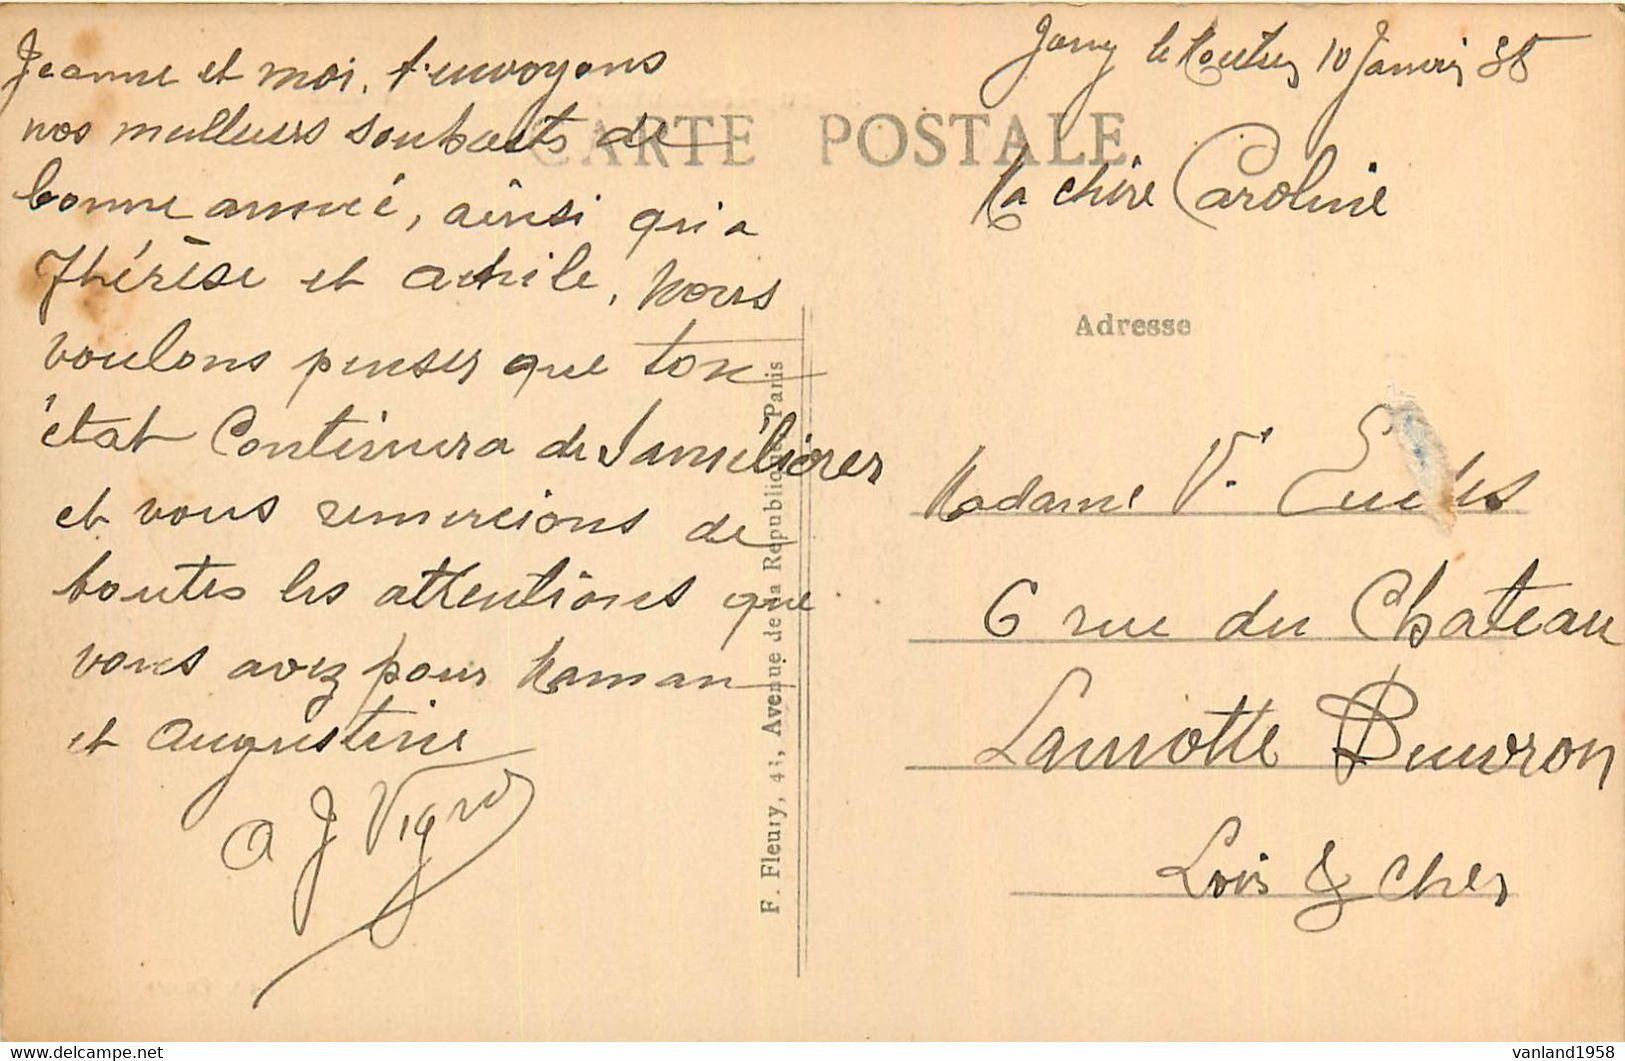 Jouy le Moutier 10 Janvier 38
CARTE POSTALE
Ma chère Caroline
Jeanne et moi, t'envoyons
nos meilleurs souhaits de
bonne année, ainsi qu'a
Thérèse et achile, Nous
voulons penser que ton
état continuera de s'améliorer
et vous remercions de
toutes les attentions que
vous avez pour Maman
et Augustine
A J Vigné
F. Fleury, 43, Avenue de la République, Paris
Adresse
Madame Vᵉ
6 rue du Chateau
Lamotte Beuvron
Loir & Cher
vanland1958